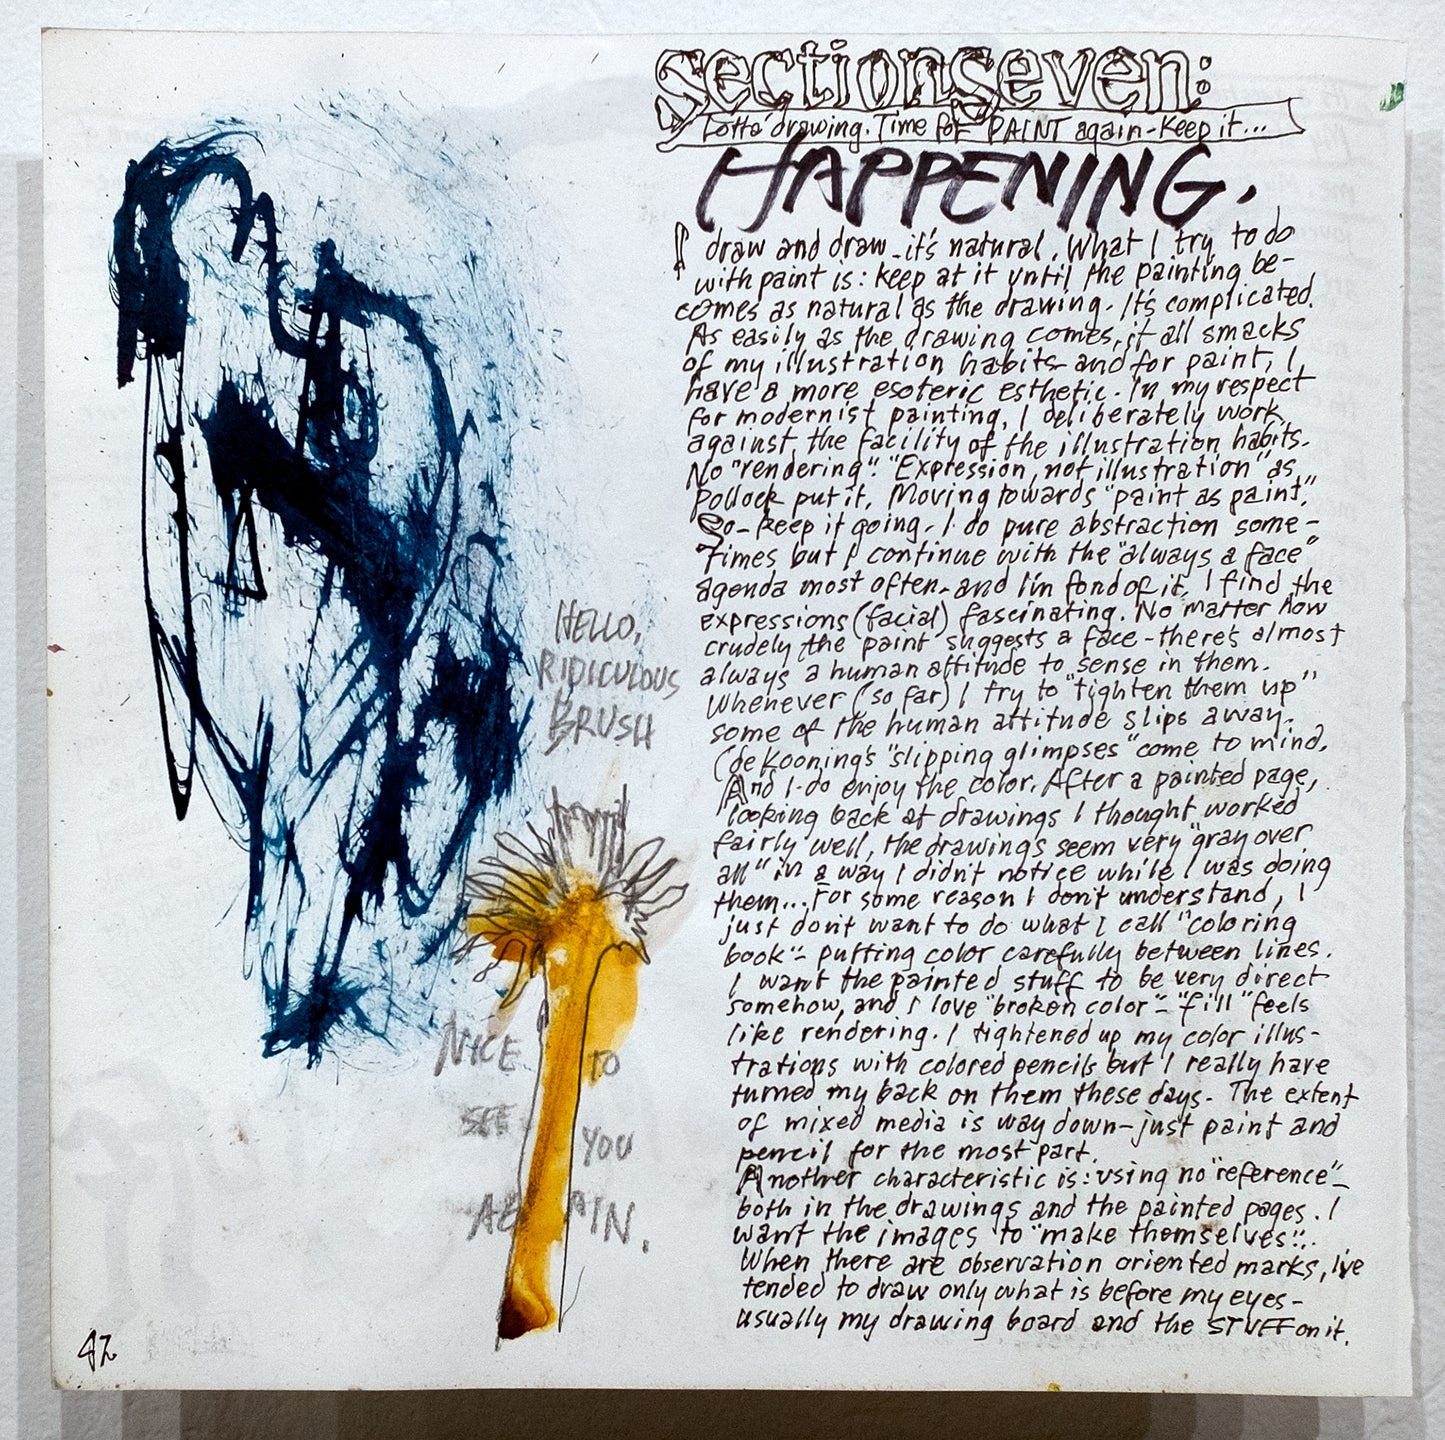 section seven:
Lotta drawing. Time for PAINT again-Keep it...
HAPPENING.
I draw and draw - it's natural. What I try to do
with paint is: keep at it until the painting be-
comes as natural as the drawing. It's complicated.
As easily as the drawing comes, it all smacks
of my illustration habits - and for paint, I
have a more esoteric esthetic. In my respect
for modernist painting, I deliberately work
against the facility of the illustration habits.
No "rendering". "Expression, not illustration" as
Pollock put it. Moving towards "paint as paint."
So - keep it going. I do pure abstraction some-
times but I continue with the "always a face"
agenda most often - and I'm fond of it. I find the
expressions (facial) fascinating. No matter how
crudely the paint suggests a face - there's almost
always a human attitude to sense in them.
Whenever (so far) I try to "tighten them up"
some of the human attitude slips away.
(deKooning's "slipping glimpses" come to mind.
And I do enjoy the color. After a painted page,
looking back at drawings I thought worked
fairly well, the drawings seem very "gray over
all" in a way I didn't notice while I was doing
them... For some reason I don't understand, I
just don't want to do what I call "coloring
book" - putting color carefully between lines.
I want the painted stuff to be very direct
somehow, and I love "broken color" - "fill" feels
like rendering. I tightened up my color illus-
trations with colored pencils but I really have
turned my back on them these days. The extent
of mixed media is way down - just paint and
pencil for the most part.
Another characteristic is: using no "reference" -
both in the drawings and the painted pages. I
want the images to "make themselves"...
When there are observation oriented marks, I've
tended to draw only what is before my eyes -
usually my drawing board and the STUFF on it.
HELLO,
RIDICULOUS
BRUSH
NICE TO
SEE YOU
AGAIN.